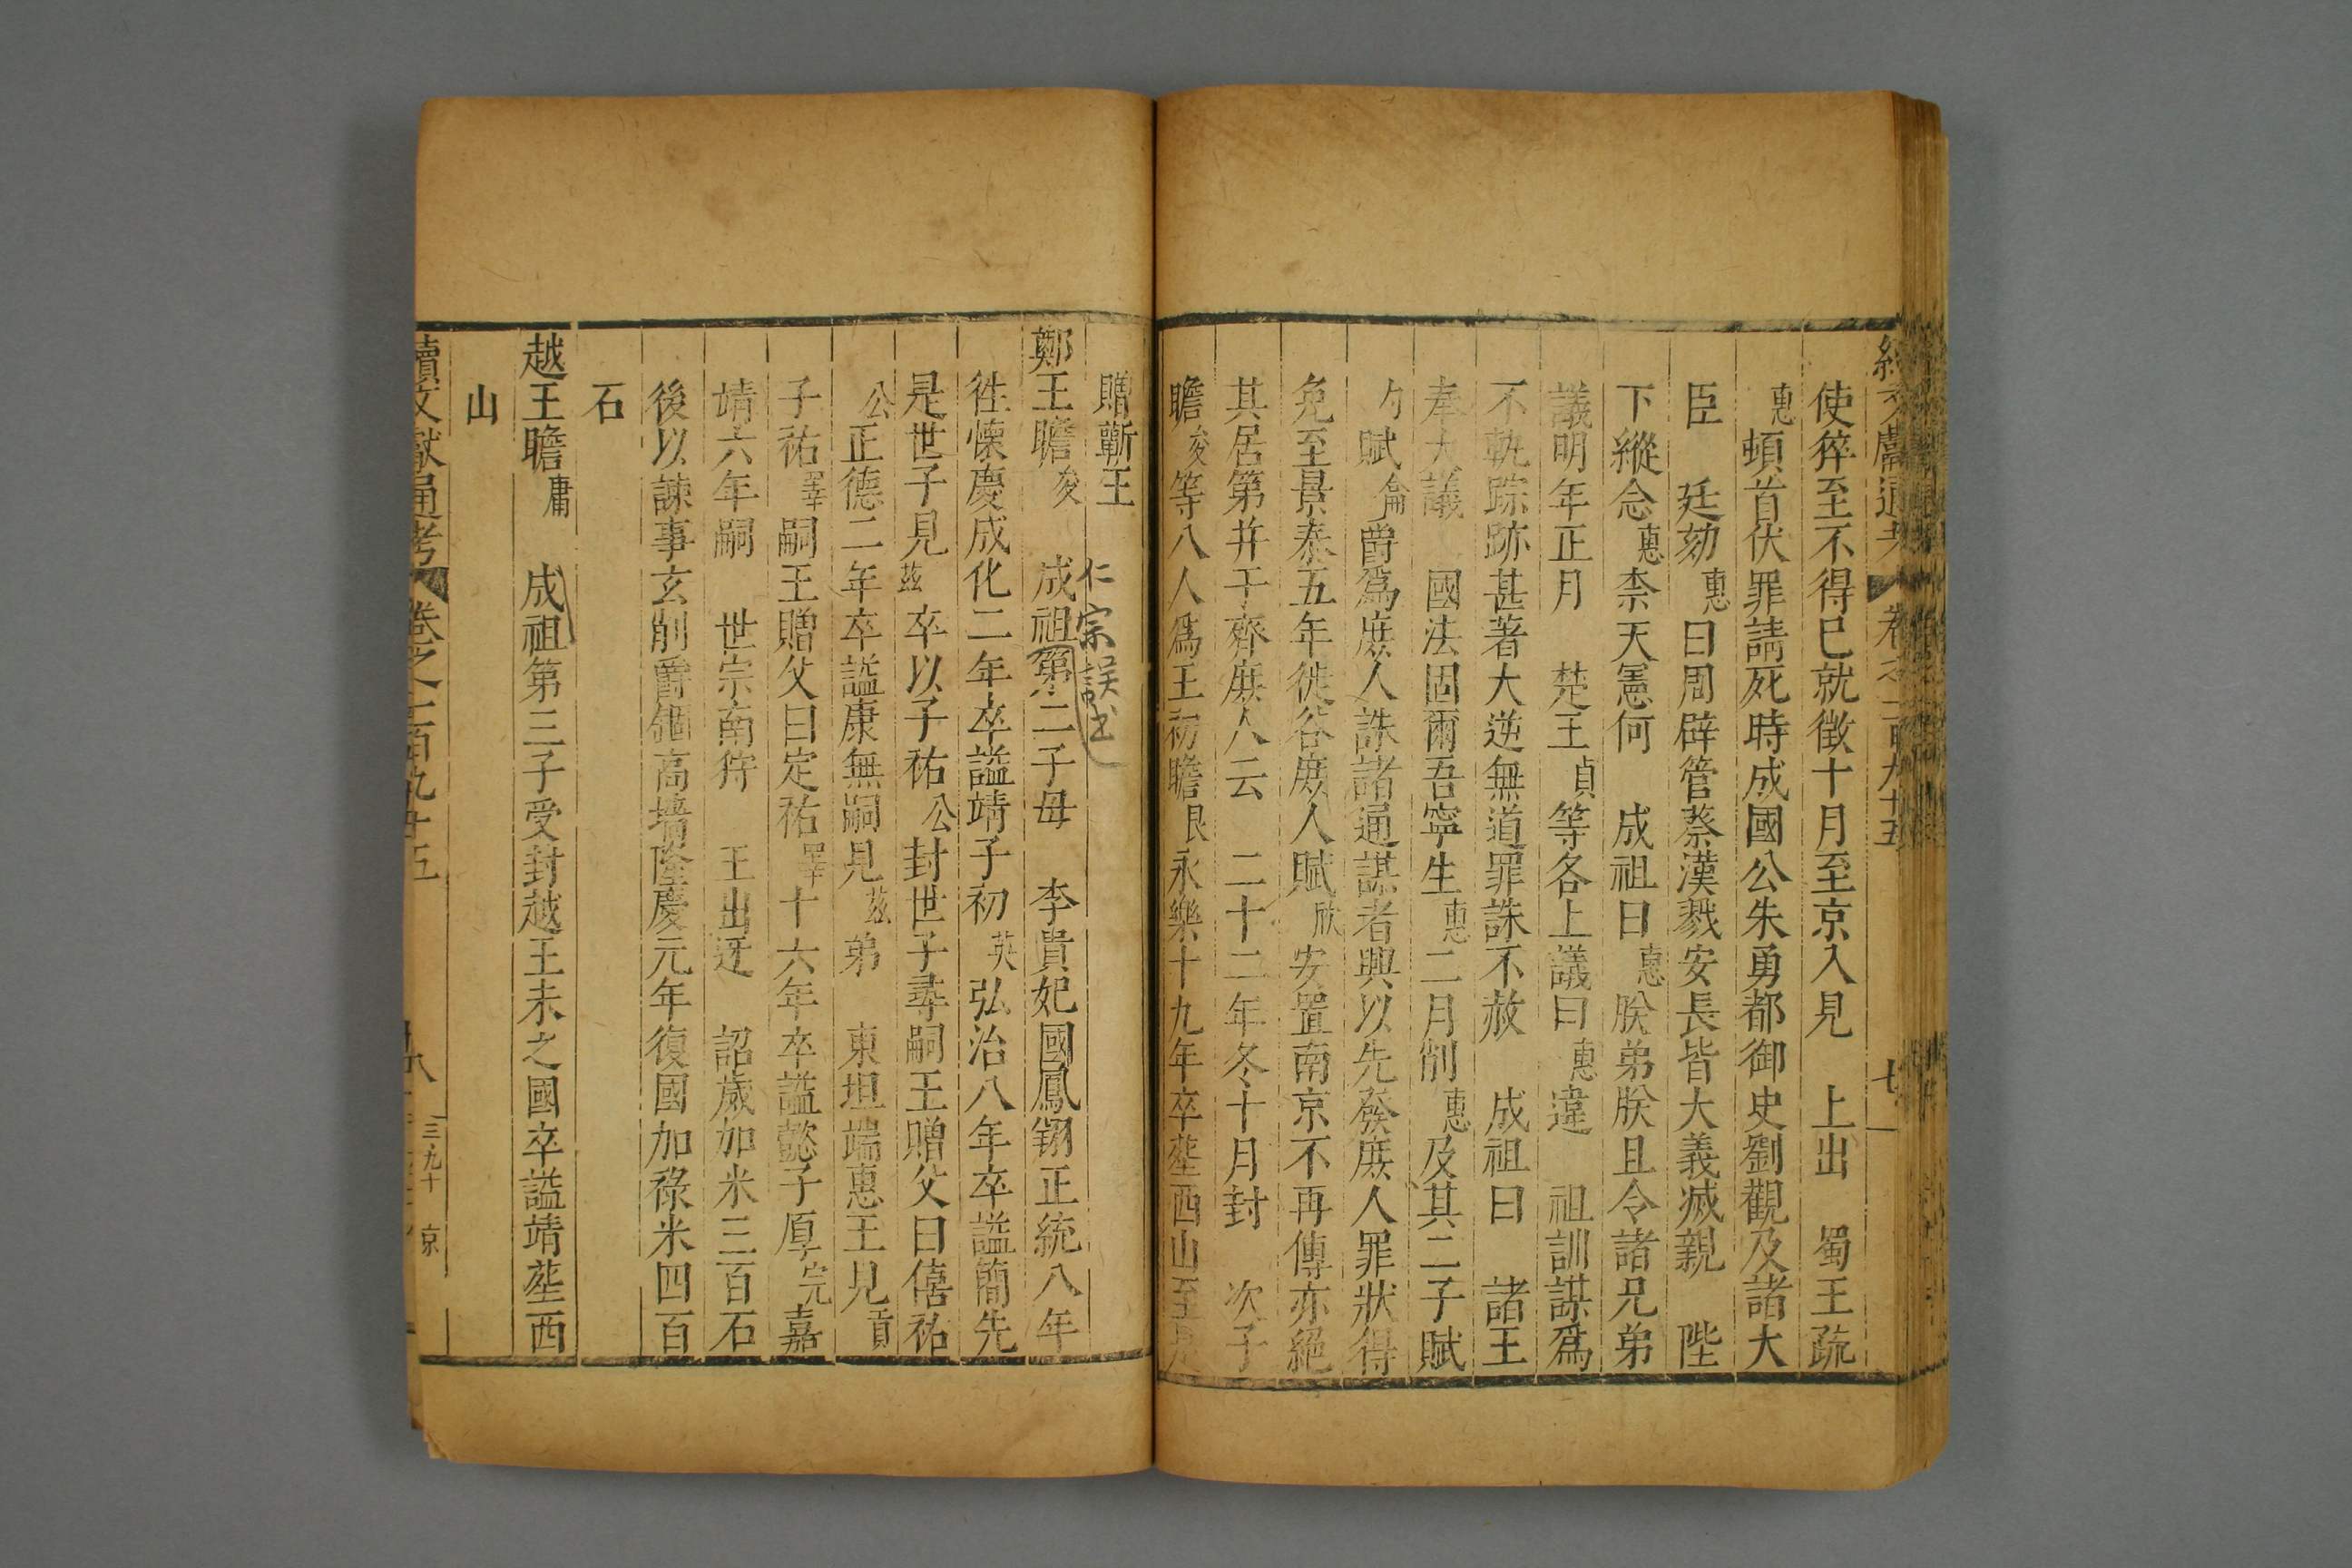 續文獻通考 卷之二百九十五 七
使猝至不得已就徵十月至京入見 上出 蜀王疏
惠頓首伏罪請死時成國公朱勇都御史劉觀及諸大
臣 廷劾惠曰周辟管蔡漢戮安長皆大義滅親 陛
下縱念惠柰天憲何 成祖曰惠朕弟朕且令諸兄弟
議明年正月 楚王貞等各上議曰惠違 祖訓謀爲
不軌踪跡甚著大逆無道罪誅不赦 成祖曰 諸王
奉大議 國法固爾吾寧生惠二月削惠及其二子賦
灼賦爚爵爲庶人誅諸通謀者興以先發庶人罪狀得
免至景泰五年徙谷庶人賦㶷安置南京不再傳亦絕
其居第并于齊庶人云 二十二年冬十月封 次子
瞻埈等八人爲王初瞻垠永樂十九年卒塟西山至是
贈蘄王
仁宗誤書
鄭王瞻埈 成祖第二子母 李貴妃國鳳翔正統八年
徃懷慶成化二年卒謚靖子初祁鍈弘治八年卒謚簡先
是世子見滋卒以子祐枔封世子尋嗣王贈父曰僖祐
枔正德二年卒謚康無嗣見滋弟 東垣端惠王見𣸣
子祐檡嗣王贈父曰定祐檡十六年卒謚懿子厚烷嘉
靖六年嗣 世宗南狩 王出迓 詔歲加米三百石
後以諫事玄削爵錮高墻隆慶元年復國加祿米四百
石
越王瞻墉 成祖第三子受封越王未之國卒謚靖塟西
山
續文獻通考 卷之二百九十五 八 三九十 京